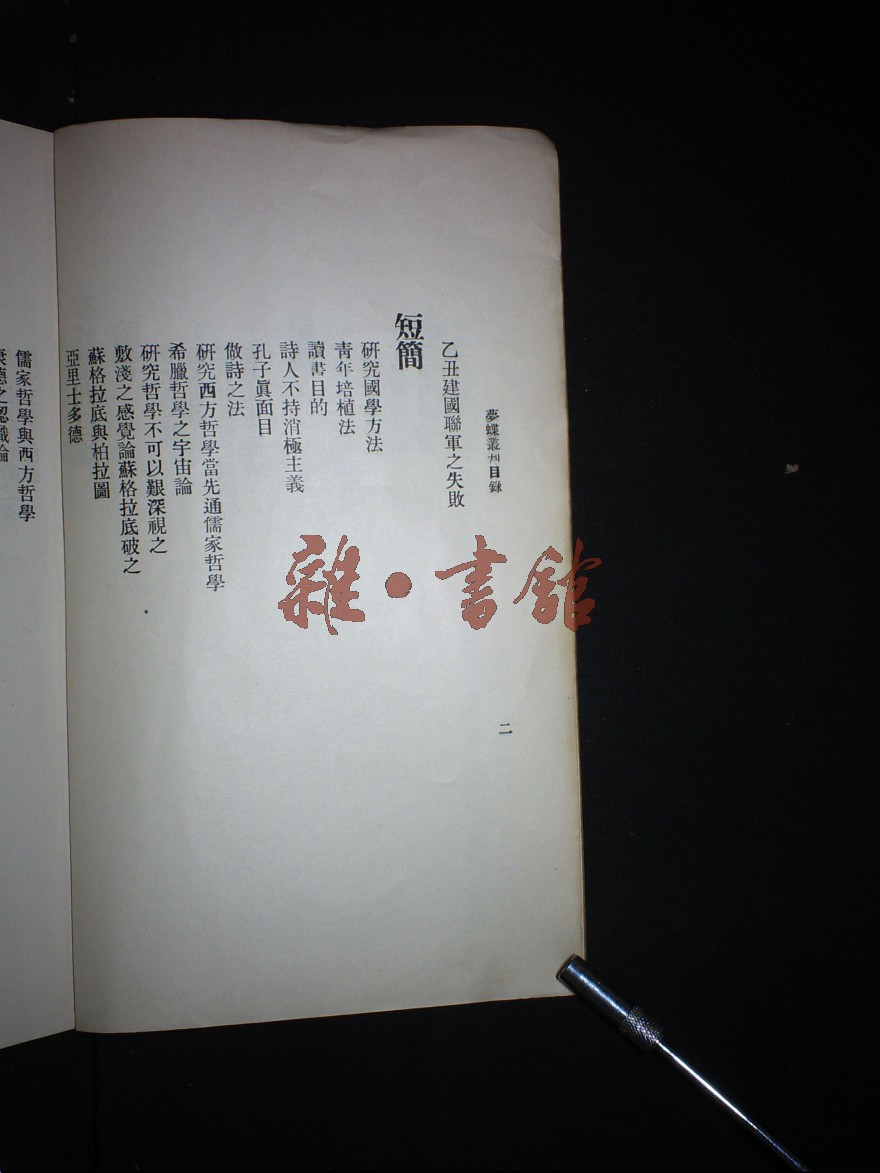 夢蝶叢刋目錄
二
乙丑建國聯軍之失敗
短簡
研究國學方法
靑年培植法
讀書目的
詩人不持消極主義
孔子眞面目
做詩之法
研究西方哲學當先通儒家哲學
希臘哲學之宇宙論
研究哲學不可以艱深視之
敷淺之感覺論蘇格拉底破之
蘇格拉底與柏拉圖
亞里士多德
儒家哲學與西方哲學
康德之認識論
雜·書館